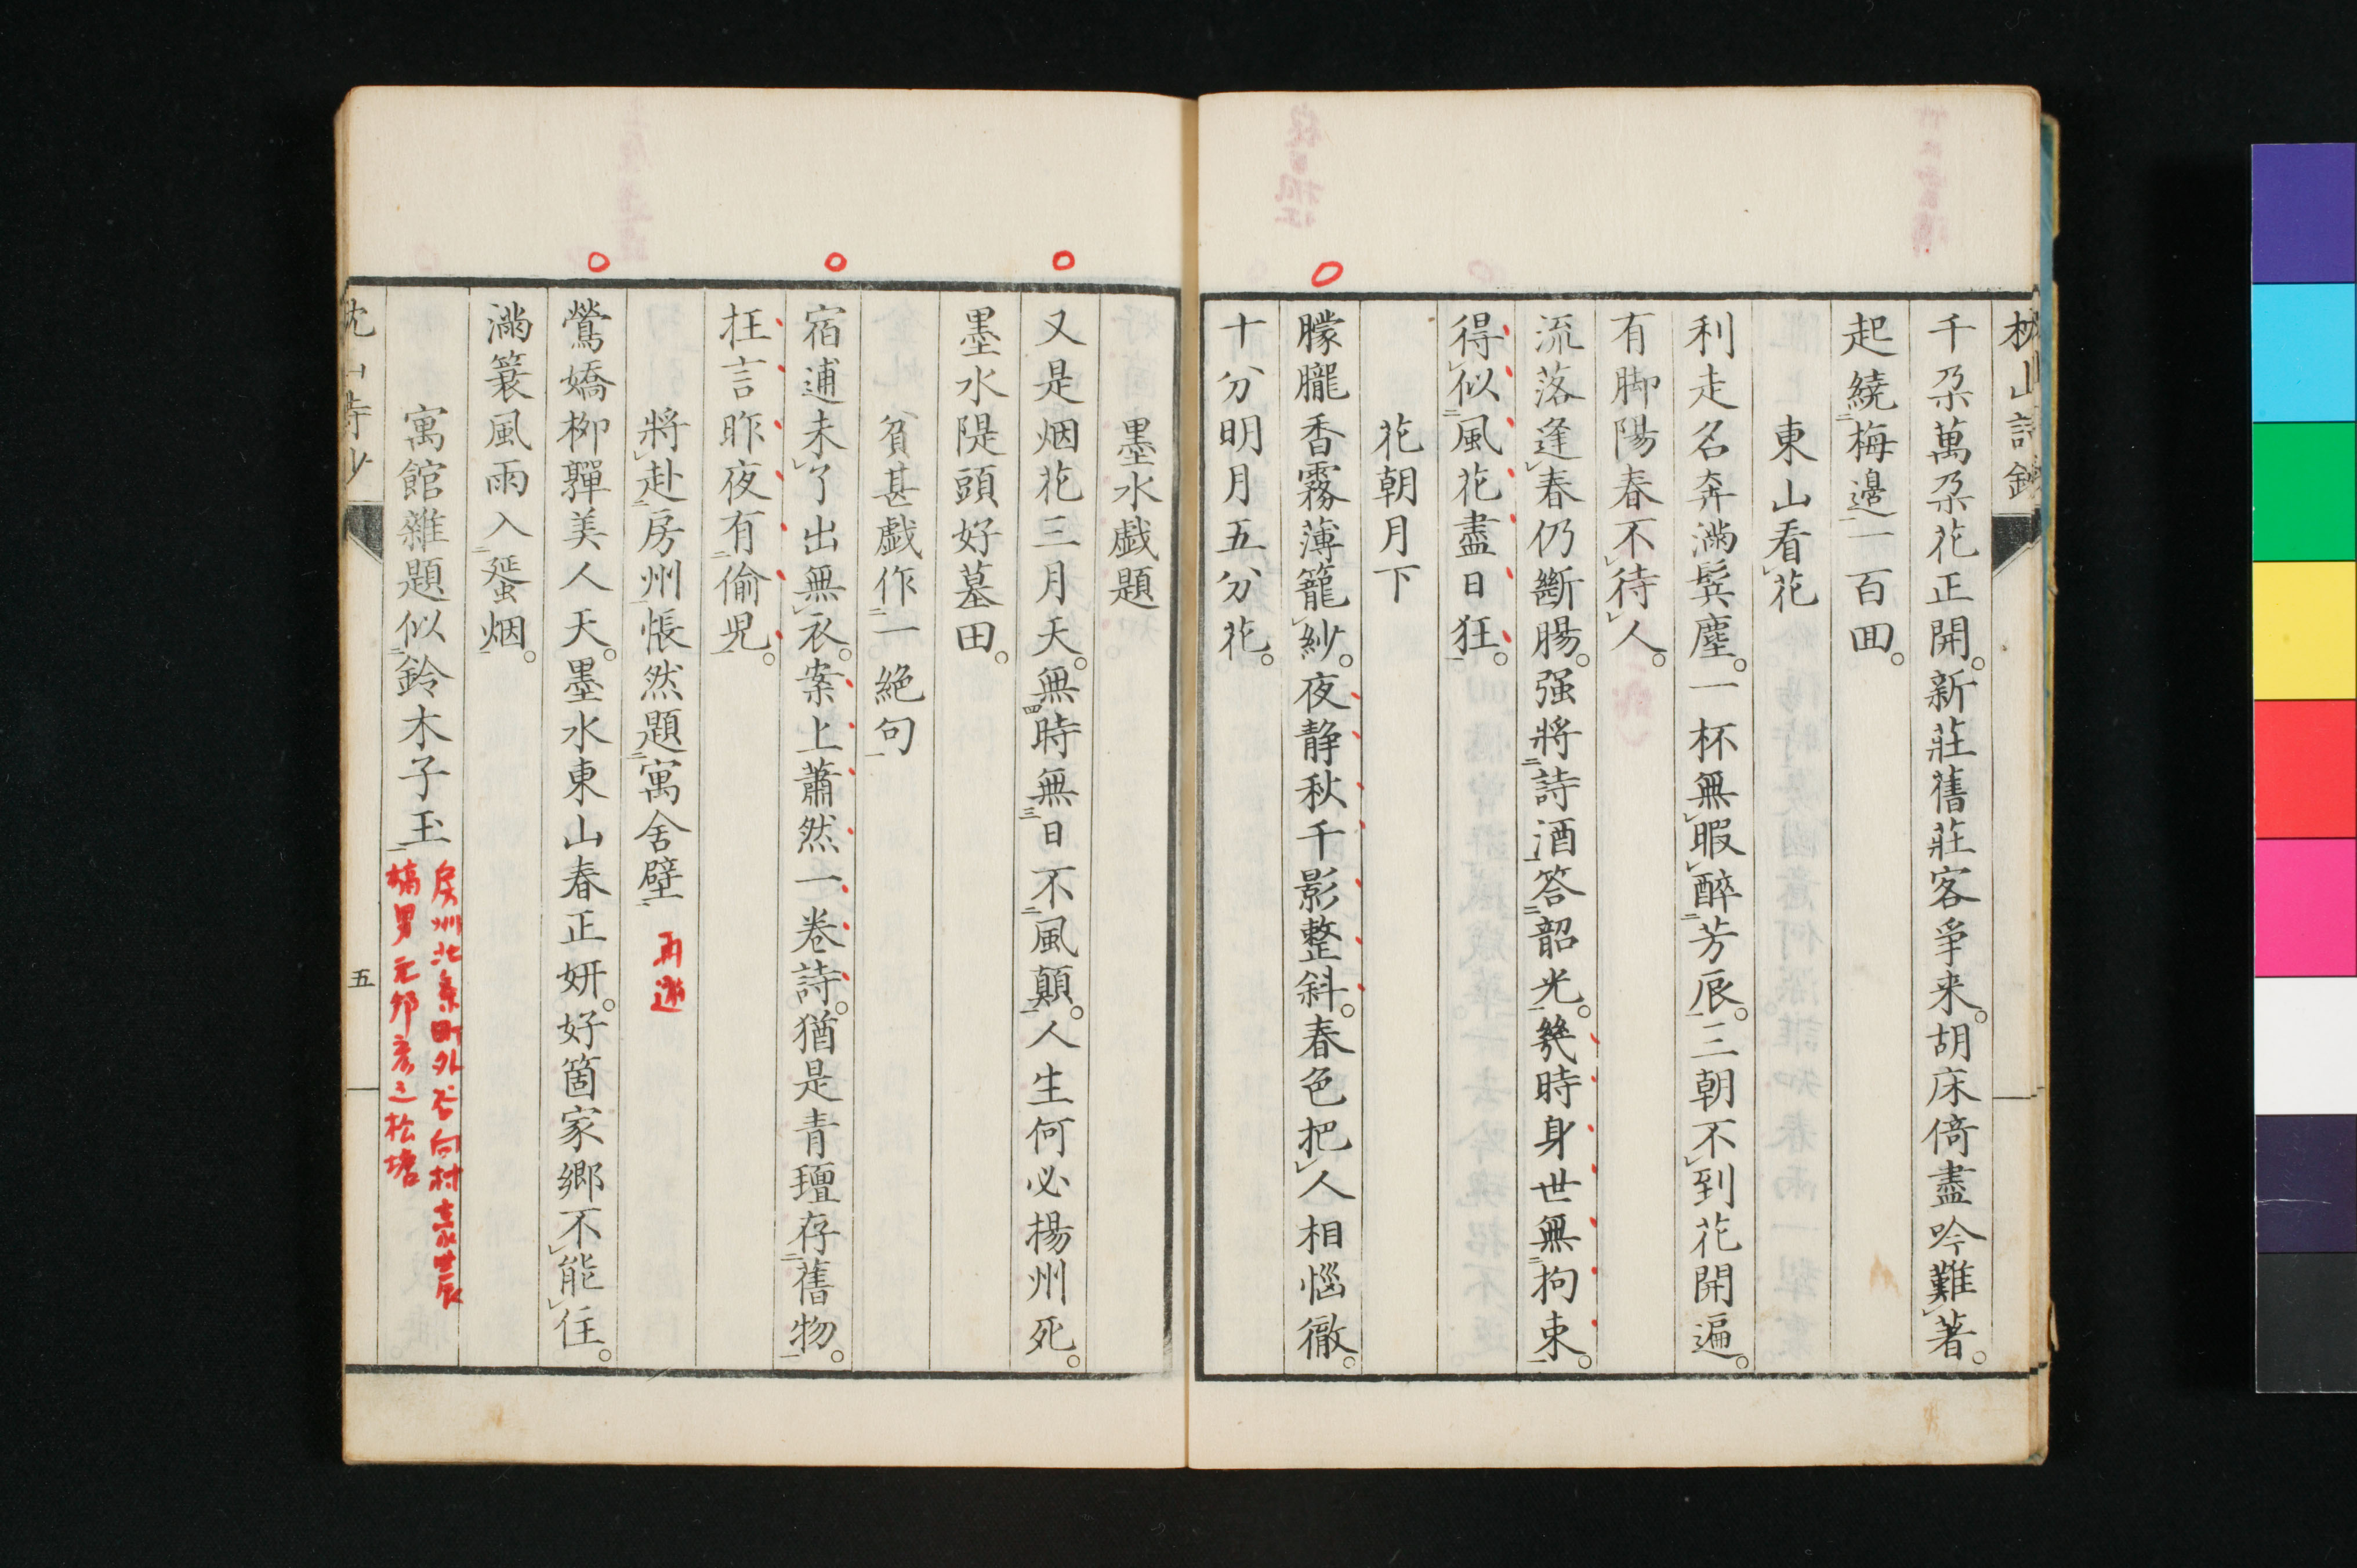 枕山詩鈔
千朶萬朶花正開。新莊舊莊客爭来。胡床倚盡吟難㆑著。
起繞㆓梅邊㆒一百回。
東山看㆑花
利走名奔滿鬂塵。一杯無㆑暇㆑醉㆓芳辰㆒。三朝不㆑到花開遍。
有脚陽春不㆑待㆑人。
流落逢㆑春仍斷腸。强將㆓詩酒㆒答㆓韶光㆒。幾時身世無㆓拘束㆒。
得㆑似㆓風花盡日狂㆒。
花朝月下
朦朧香霧薄籠㆑紗。夜静秋千影整斜。春色把㆑人相惱徹。
十分明月五分花。
墨水戯題
又是烟花三月天。無㆕時無㆔日不㆓風顛㆒。人生何必楊州死。
墨水隄頭好墓田。
貧甚戯作㆓一絶句㆒
宿逋未㆑了出無㆑衣。案上蕭然一卷詩。猶是青氊存㆓舊物㆒。
抂言昨夜有㆓偷児㆒。
將㆑赴㆓房州㆒悵然題㆓寓舍壁㆒
再遊
鶯嬌柳嚲美人天。墨水東山春正妍。好箇家郷不㆑能㆑住。
滿簑風雨入㆓蜑烟㆒。
寓館雜題似㆓鈴木子玉㆒
房州北条町外谷向村
男元邦彦之松塘
枕山詩鈔
五